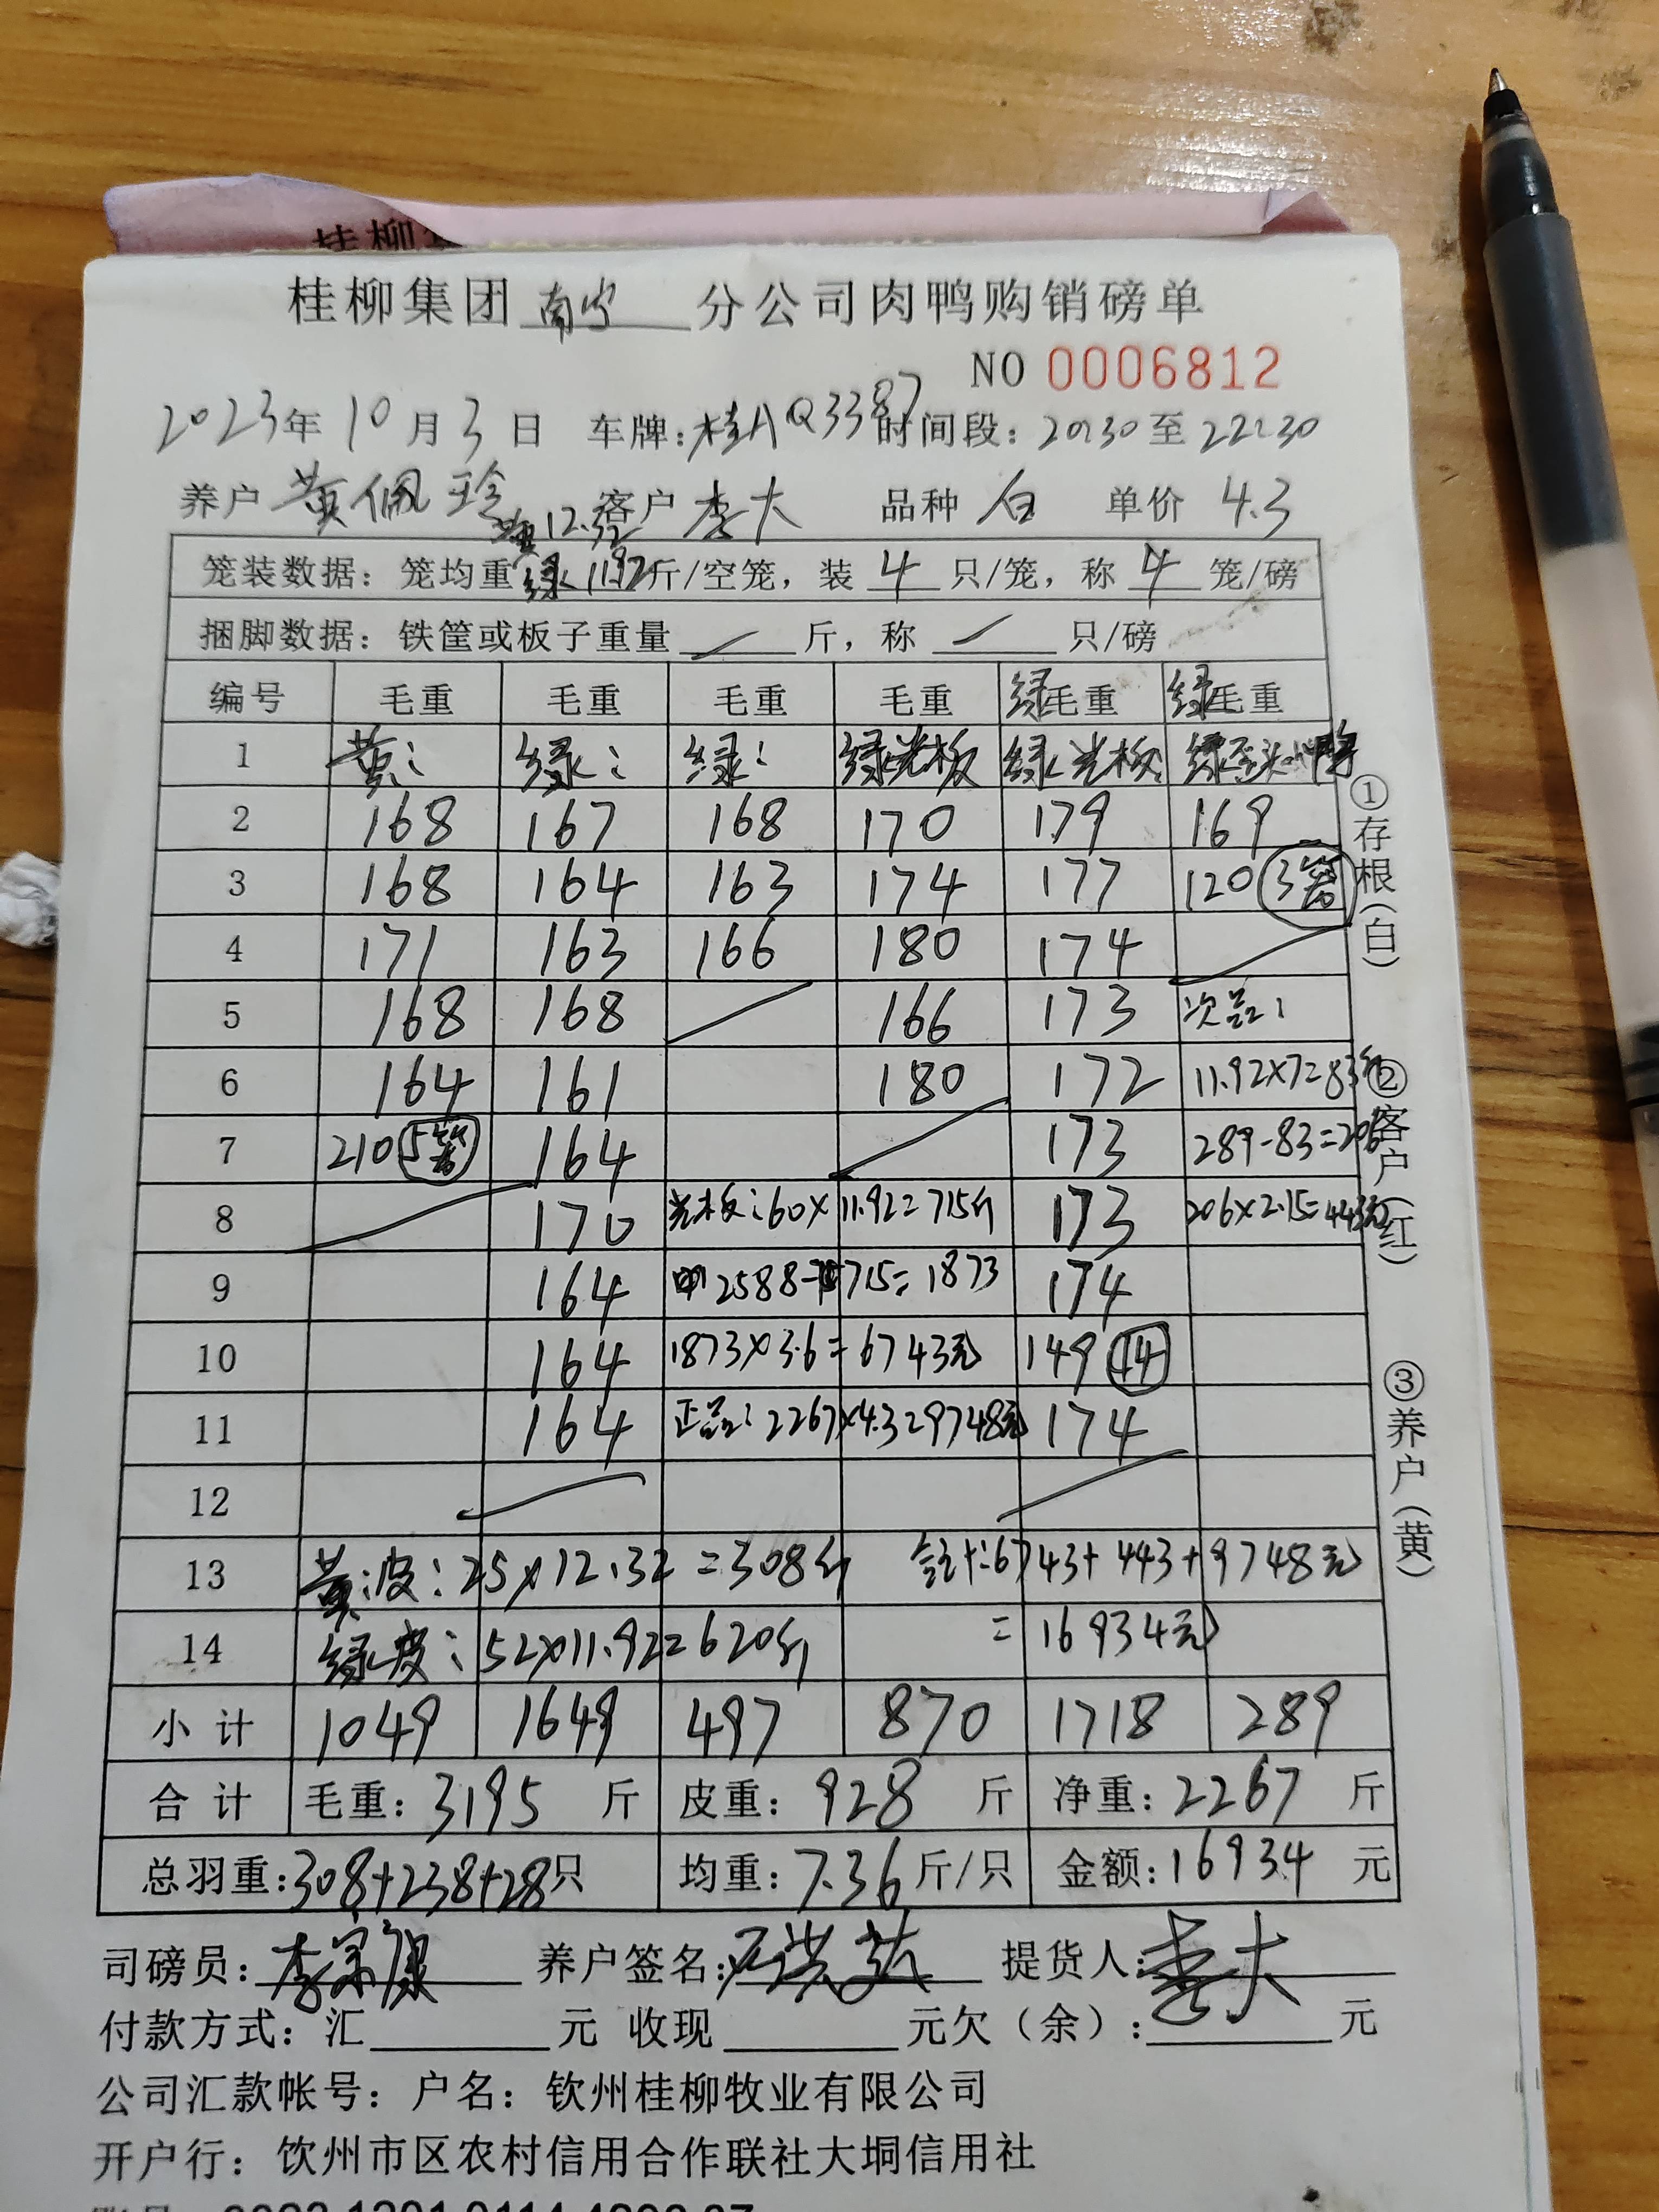 桂柳集团南宁分公司肉鸭购销磅单
NO 0006812
2023年10月3日 车牌:桂AQ3387 时间段:20:30至22:30
养户 黄佩玲 客户 李大 品种 白 单价 4.3
黄12.32
笼装数据:笼均重绿11.92斤/空笼,装4只/笼,称4笼/磅
捆脚数据:铁筐或板子重量 斤,称 只/磅
编号 毛重 毛重 毛重 毛重 绿毛重 绿毛重
1 黄: 绿: 绿: 绿光板 绿光板
2 168 167 168 170 179 169
3 168 164 163 174 177 120 3笼
4 171 163 166 180 174
5 168 168 166 173 次品:
6 164 161 180 172 11.92×7=83斤
7 210 5笼 164 173 289-83=206
8 170 光板:60×11.92=715斤 173 206×2.15=443元
9 164 2588-715=1873 174
10 164 1873×3.6=6743元 149 14
11 164 正品:2267×4.3=9748元 174
12
13 黄皮:25×12.32=308斤 合计:6743+443+9748元
14 绿皮:52×11.92=620斤 =16934元
小计 1049 1649 497 870 1718 289
合计 毛重:3195斤 皮重:928斤 净重:2267斤
总羽重:308+238+28只 均重:7.36斤/只 金额:16934元
司磅员:李 养户签名: 提货人:李大
付款方式:汇 元 收现 元欠(余): 元
公司汇款帐号:户名:钦州桂柳牧业有限公司
开户行:钦州市区农村信用合作联社大垌信用社
①存根(白)
②客户(红)
③养户(黄)
桂柳